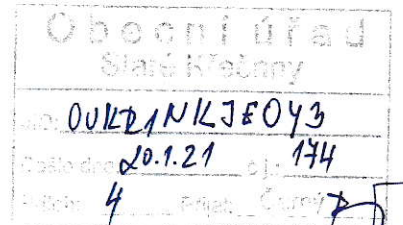 Obecní úřad
Staré Křečany
OUKR1NKJE0Y3
Došlo dne: 20.1.21 č.j.: 174
Přílohy: 4